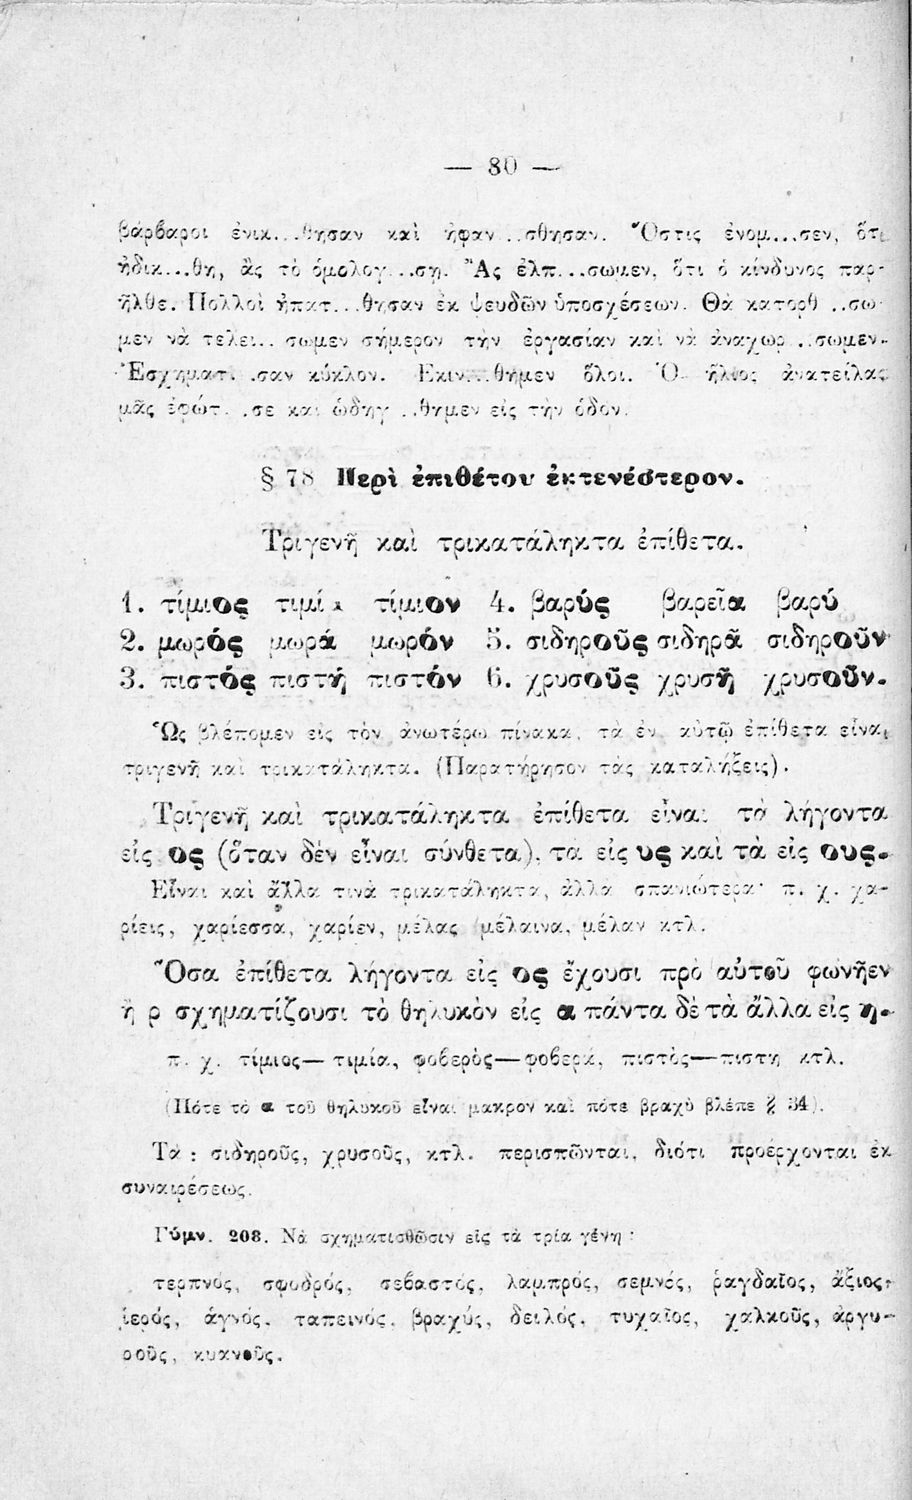 — 80 —
βάρβαροι ἐνικ...θησαν καὶ ἠφαν...σθησαν. Ὅστις ἐνομ...σεν, ὅτι
ἠδικ...θη, ἂς τὸ ὁμολογ...σῃ. Ἂς ἐλπ...σωμεν, ὅτι ὁ κίνδυνος παρ-
ῆλθε. Πολλοὶ ἠπατ...θησαν ἐκ ψευδῶν ὑποσχέσεων. Θὰ κατορθ...σω-
μεν νὰ τελει...σωμεν σήμερον τὴν ἐργασίαν καὶ νὰ ἀναχωρ...σωμεν.
Ἐσχηματ...σαν κύκλον. Ἐκιν...θημεν ὅλοι. Ὁ ἥλιος ἀνατείλας
μᾶς ἐφώτ...σε καὶ ὡδηγ...θημεν εἰς τὴν ὁδόν.
§ 78 Περὶ ἐπιθέτου ἐκτενέστερον.
Τριγενῆ καὶ τρικατάληκτα ἐπίθετα.
1. τίμιος τιμία τίμιον 4. βαρύς βαρεῖα βαρύ
2. μωρός μωρά μωρόν 5. σιδηροῦς σιδηρᾶ σιδηροῦν
3. πιστός πιστή πιστόν 6. χρυσοῦς χρυσῆ χρυσοῦν.
Ὡς βλέπομεν εἰς τὸν ἀνωτέρω πίνακα, τὰ ἐν αὐτῷ ἐπίθετα εἶναι
τριγενῆ καὶ τρικατάληκτα. (Παρατήρησον τὰς καταλήξεις).
Τριγενῆ καὶ τρικατάληκτα ἐπίθετα εἶναι τὰ λήγοντα
εἰς ος (ὅταν δὲν εἶναι σύνθετα), τα εἰς υς καὶ τὰ εἰς ους.
Εἶναι καὶ ἄλλα τινὰ τρικατάληκτα, ἀλλὰ σπανιώτερα· π. χ. χα-
ρίεις, χαρίεσσα, χαρίεν, μέλας μέλαινα, μέλαν κτλ.
Ὅσα ἐπίθετα λήγοντα εἰς ος ἔχουσι πρὸ αὐτοῦ φωνῆεν
ἢ ρ σχηματίζουσι τὸ θηλυκὸν εἰς α πάντα δὲ τὰ ἄλλα εἰς η.
π. χ. τίμιος—τιμία, φοβερὸς—φοβερά, πιστὸς—πιστη κτλ.
(Πότε τὸ α τοῦ θηλυκοῦ εἶναι μακρον καὶ πότε βραχὺ βλέπε § 34).
Τὰ : σιδηροῦς, χρυσοῦς, κτλ. περισπῶνται, διότι προέρχονται ἐκ
συναιρέσεως.
Γύμν. 208. Νὰ σχηματισθῶσιν εἰς τὰ τρία γένη :
τερπνός, σφοδρός, σεβαστός, λαμπρός, σεμνός, ῥαγδαῖος, ἄξιος,
ἱερός, ἁγνός, ταπεινός, βραχύς, δειλός, τυχαῖος, χαλκοῦς, ἀργυ-
ροῦς, κυανοῦς.